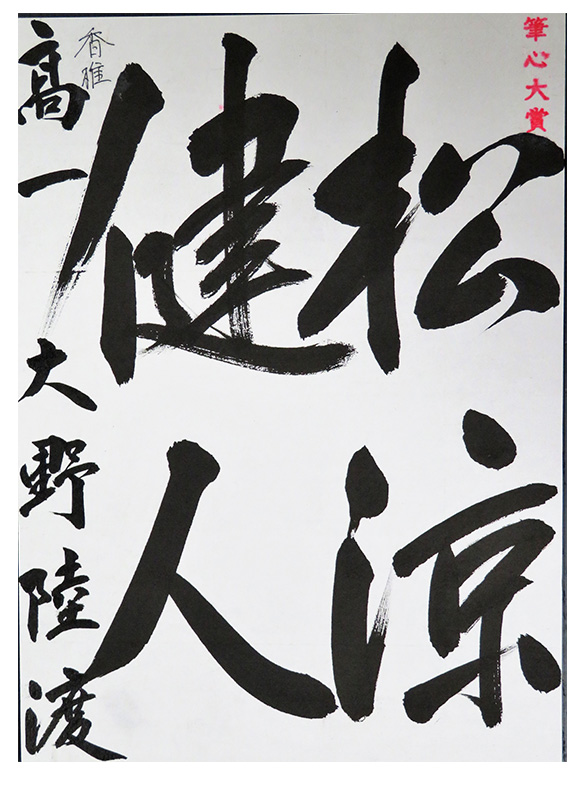 筆心大賞
松涼
健人
高一 大野陸渡
香雅